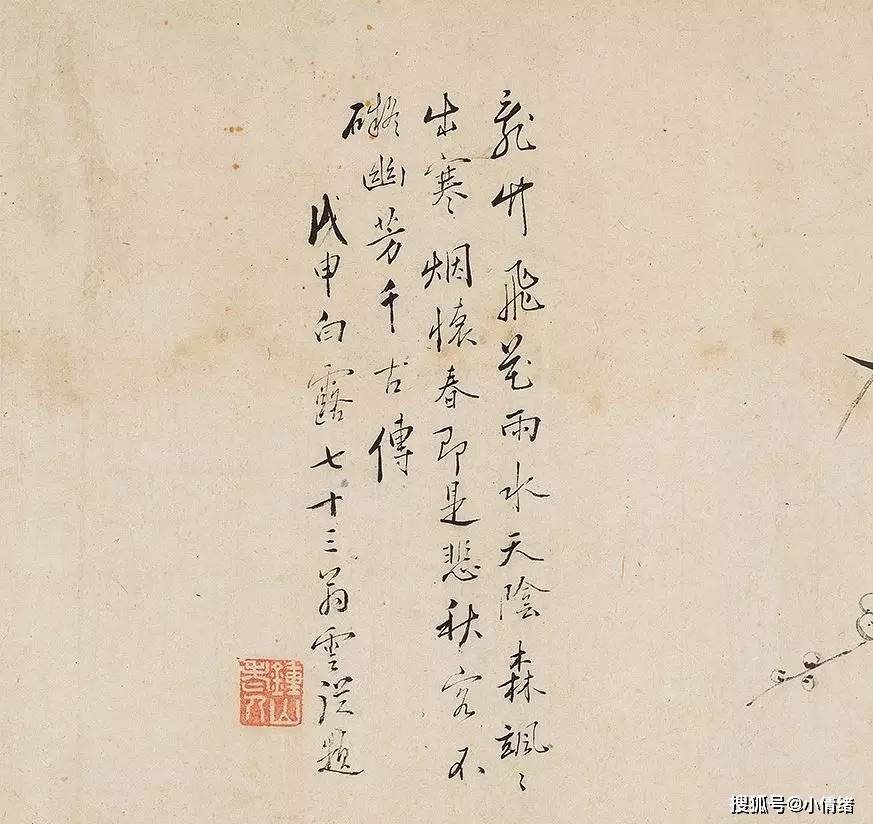 龍竹飛花雨水天陰森颯〻
出寒烟懷春即是悲秋客不
礙幽芳千古傳
戊申白露七十三翁雲從題
鍾山老人
搜狐号@小倩绪